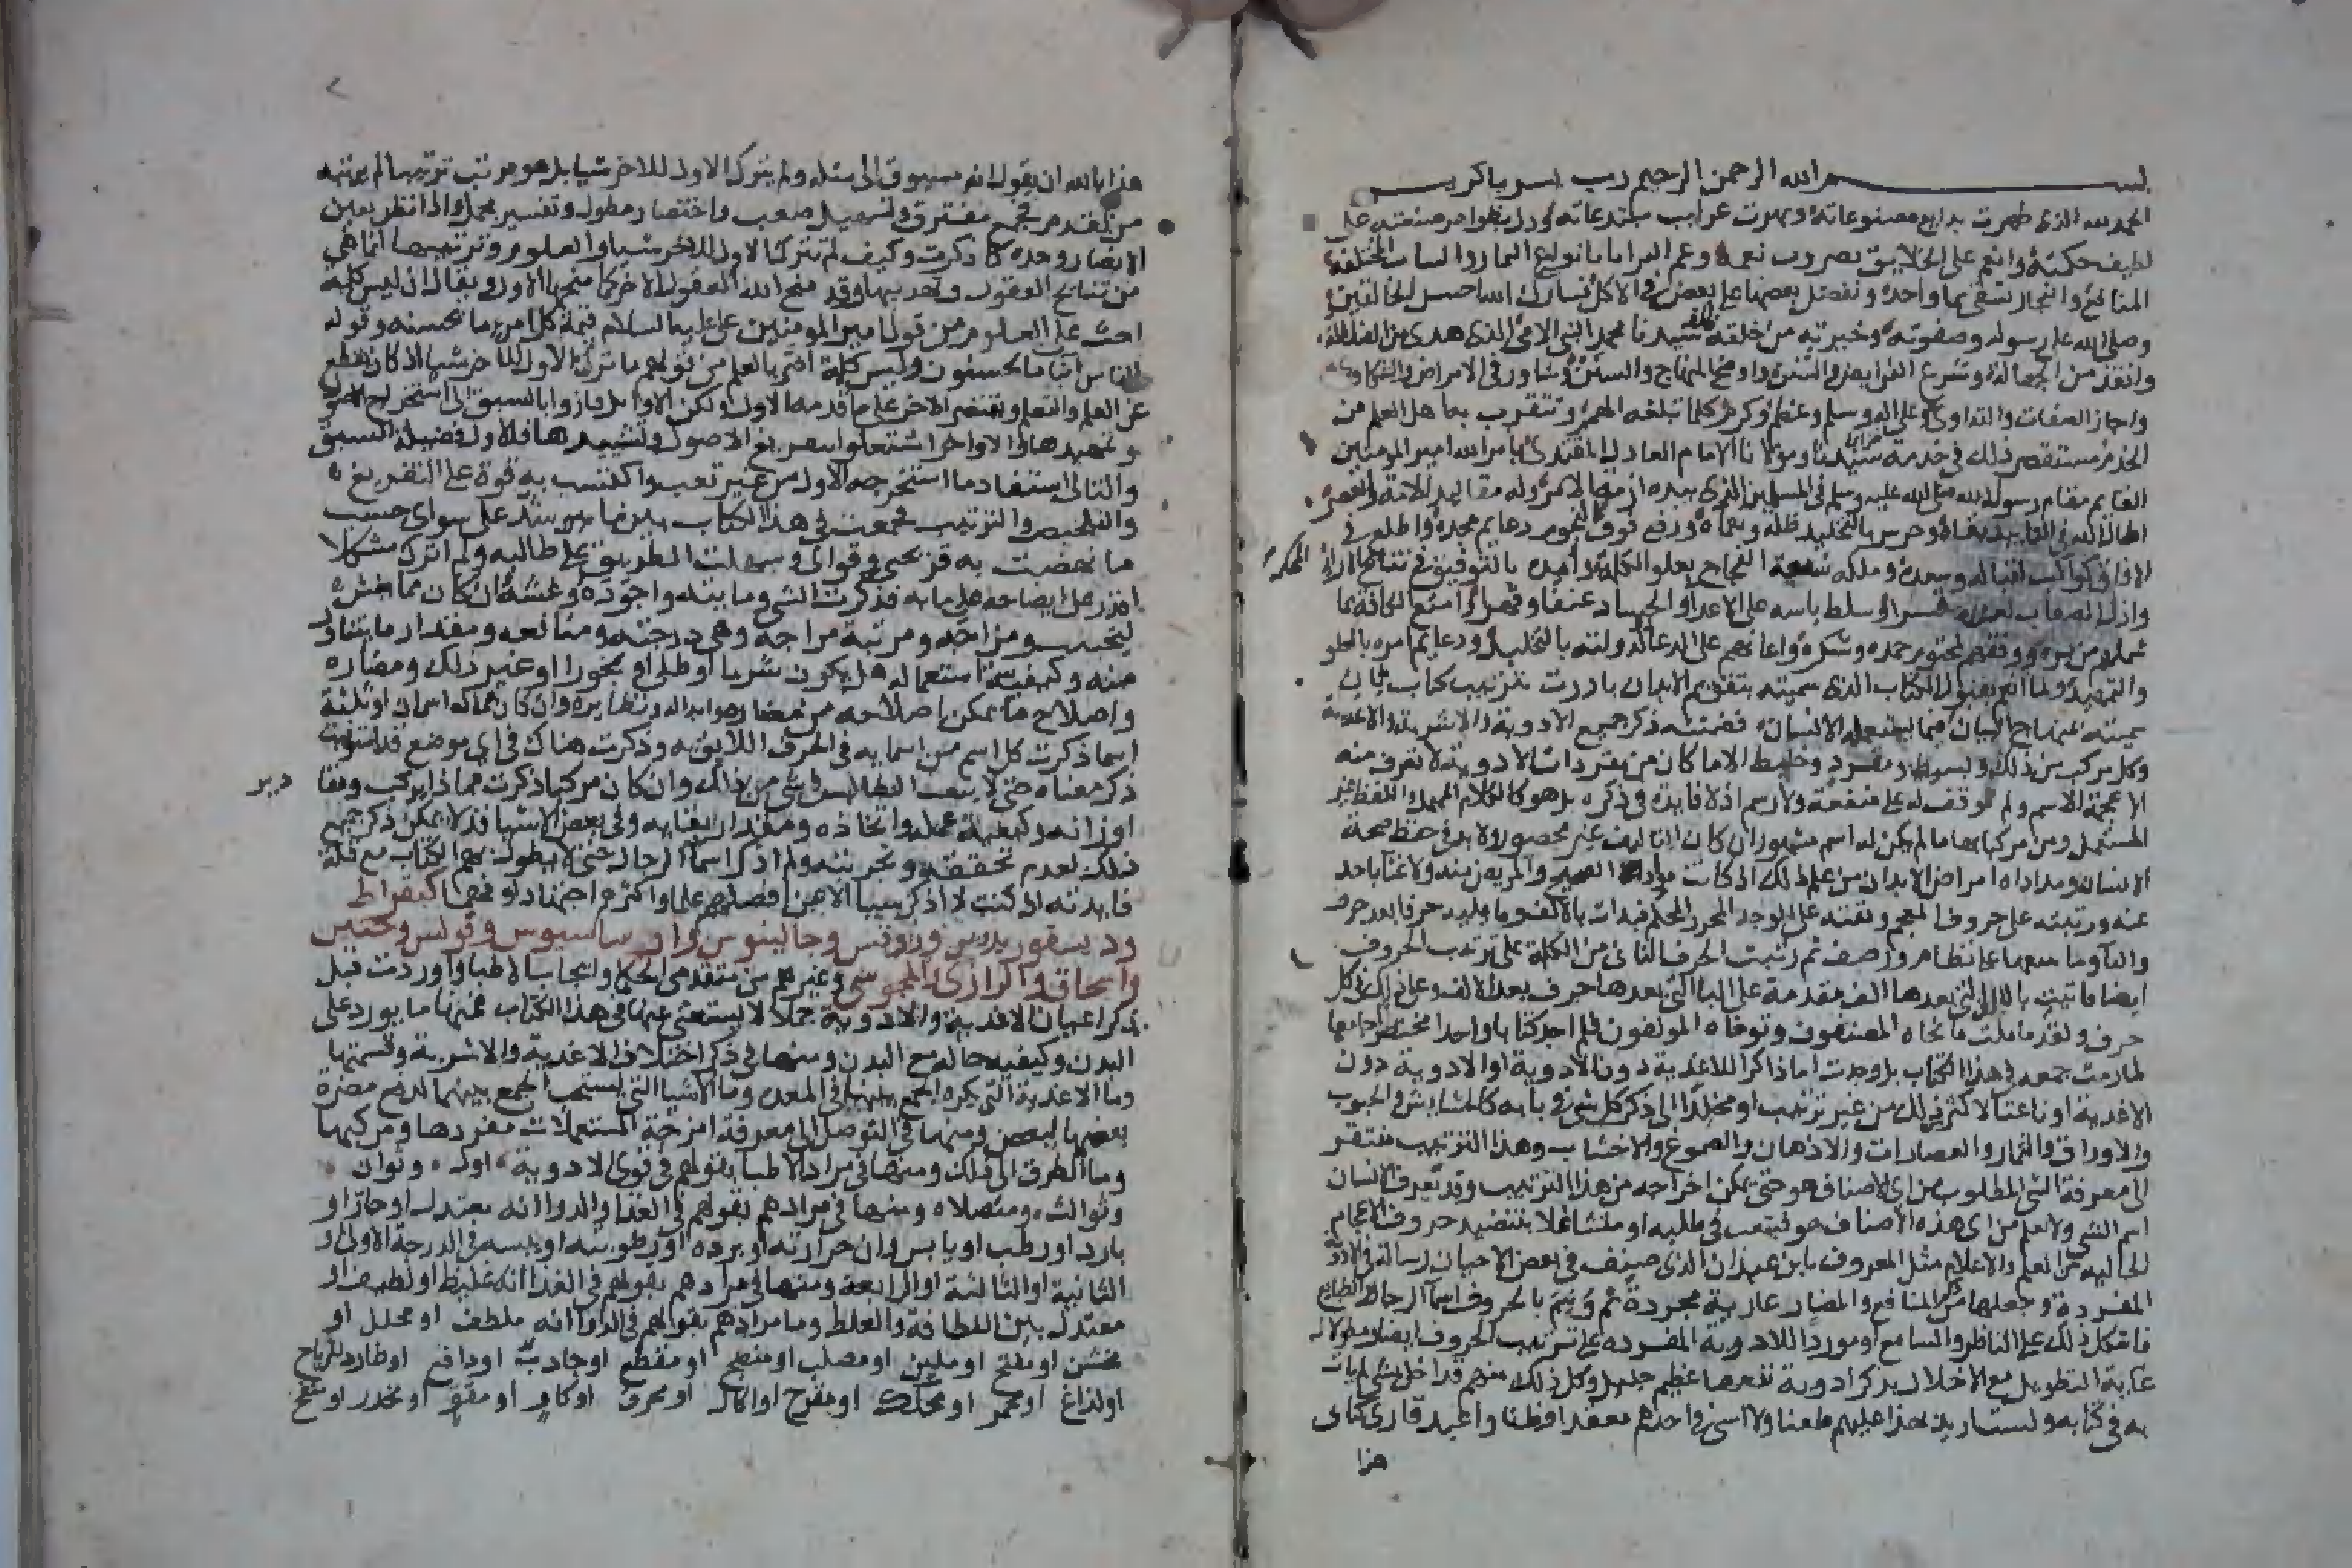 بسم الله الرحمن الرحيم رب يسر يا كريم
الحمد لله الذى ظهرت بدايع مصنوعاته وبهرت غرايب مبتدعاته ودل بظواهر صنعته على
لطيف حكمته وانعم على الخلايق بصروف نعمه وعم البرايا بانواع الثمار والنبات المختلفة
المنافع والنجار تسقى بما واحد ونفضل بعضها على بعض فى الاكل تبارك الله احسن الخالقين
وصلى الله على رسوله وصفوته وخيرته من خلقه سيدنا محمد النبى الامى الذى هدى من الضلالة
وانقذ من الجهالة وشرع الفرايض والسنن واوضح المنهاج والسنن وشاور فى الامراض والشكاوى
واجاز الصفات والتداوى وعلى اله وسلم وعظم وكرم كلما تبلغه الهمم وتتقرب بها هل العلم من
الخدم مستقصر ذلك فى خدمة سيدنا ومولانا الامام العادل المقتدى بامر الله امير المومنين
القايم مقام رسول الله صلى الله عليه وسلم فى المسلمين الذى بيده ازمة الامر وله مقاليد الامة والعصر
اطال الله فى التاييد بقاه وحرس بالتخليد ظله ونعماه ورفع فوق النجوم دعايم مجده واطلع فى
الافاق كواكب اقباله وسعده وملكه النجاح بعلو الكلمة وايده بالتوفيق فى نتايج الاراء المحكمة
واذل الصعاب وسلط باسه على الاعداء والحساد عنفا وقهرا وامتع الكافة بما
شملهم من بره ووفقهم لحمده وشكره واعانهم على الدعا لدولته بالتخليد ودعايم امره بالعلو
والتمهيد ولما انعم بقبول الكتاب الذى سميته بتقويم الابدان بادرت بترتيب كتاب ثانى
سميته بمنهاج البيان فيما يستعمله الانسان فضمنته ذكر جميع الادوية والاشربة والاغذية
وكل مركب من ذلك وبسيط ومفرد وخليط الا ما كان من مفردات الادوية لا تعرف منه
الا عجمة الاسم ولم توقف له على منفعة ولا رسم اذ لا فايدة فى ذكره بل هو كالكلام المهمل واللفظ غير
المستعمل ومن مركباتها ما لم يكن له اسم مشهور اذ كان التاليف غير محصور ولا بد فى حفظ صحة
الانسان ومداواة امراض الابدان من علم ذلك اذ كانت مواد الصحيح والمريض منه ولا غنا باحد
عنه ورتبته على حروف المعجم وبنيته على الوجه المحرر المحكم فبدات بالالف وما يليه حرفا بعد حرف
والبا وما معها على نظام ورصف ثم رتبت الحرف الثانى من الكلمة على ترتيب الحروف
ايضا فاتيت بالبا التى بعدها الف مقدمة على البا التى بعدها حرف بعد الالف وعلى ذلك فى كل
حرف ولقد تاملت ما نحاه المصنفون وتوخاه المولفون فلم اجد كتابا واحدا مختصرا جامعا
لما رمت جمعه فى هذا الكتاب بل وجدت اما ذاكرا للاغذية دون الادوية او الادوية دون
الاغذية او ناعتا لاكثر ذلك من غير ترتيب او مخلدا الى ذكر كل شى فى بابه كالحشايش والحبوب
والاوراق والثمار والعصارات والادهان والصموغ والاخشاب وهذا الترتيب مفتقر
الى معرفة الشى المطلوب من اى الاصناف هو حتى يمكن اخراجه من هذا الترتيب وقد يعرف الانسان
اسم الشى ولا يعلم من اى هذه الاصناف هو فيتعب فى طلبه او متشاغلا بتنضيد حروف الاعجام
الخالية من العلم والاعلام مثل المعروف بابن عبدان الذى صنف فى بعض الاحيان رسالة فى الادوية
المفردة وجعلها من ذكر المنافع والمضار عارية مجردة ثم وسم بالحروف اسما الرجال والطبايع
فاشكل ذلك على الناظر والسامع او موردا للادوية المفرده على ترتيب الحروف ايضا مطولا له
غاية التطويل مع الاخلال بذكر ادوية نفعها عظيم جليل وكل ذلك منهم قد اخل بشى لم يات
به فى كتابه ولست اريد بهذا عليهم طعنا ولا اسى فى احدهم معتقدا وظنا واعيذ قارى كتابى
هذا
هذا بالله ان يقول انه مسبوق الى مثله ولم يترك الاول للاخر شيا بل هو مرتب ترتيبا لم يرتبه
من تقدم من جمع مفترق وتسهيل صعب واختصار مطول وتفسير مجمل واذا نظر بعين
الانصاف وجده كما ذكرت وكيف لم تترك الاول للاخر شيا والعلوم وترتيبها انما هى
من نتايج العقول وتهذيبها وقد منح الله العقول للاخر كما منحها الاول ويقال ان ليس كلمة
احث على العلوم من قول امير المومنين على عليه السلام قيمة كل امرء ما يحسنه وقوله
الناس ابنا ما يحسنون وليس كلمة اضر بالعلم من قولهم ما ترك الاول للاخر شيا اذ كان يقطع
عن العلم والتعلم ويقتصر الاخر على ما قدمه الاول ولكن الاوايل فازوا بالسبق الى استخراج الاصول
وتمهيدها والاواخر اشتغلوا بتفريع الاصول وتشييدها فللاول فضيلة السبق
والتالى استفاد ما استخرجه الاول من غير تعب واكتسب به قوة على التفريع
والتلخيص والترتيب فجمعت فى هذا الكتاب بين على سواى حسب
ما نهضت به قريحتى وقواى وسهلت الطريق على طالبه ولم اترك مشكلا
اقدر على ايضاحه على ما به فذكرت الشى وماييته واجوده وغشه ان كان مما يغش
ليجتنب ومزاجه ومرتبة مزاجه وهى درجته ومنافعه ومقدار ما يتناول
منه وكيفية استعماله هل يكون شربا او طلى او بخورا او غير ذلك ومضاره
واصلاح ما يمكن اصلاحه من مضاره وابداله ونظايره وان كان مما له اسمان او ثلثة
اسما ذكرت كل اسم من اسمايه فى الحرف اللايق به وذكرت هناك فى اى موضع قد استوفيت
ذكر معناه حتى لا يتعب الطالب لشى من ذلك وان كان مركبا ذكرت مما ذا يركب ومقادير
اوزانه وكيفية عمله واتخاذه ومقدار بقايه وفى بعض الاشيا قد لا يمكن ذكر جميع
ذلك لعدم تحققه وتجربته ولم اذكر اسما الرجال حتى لا يطول بهم الكتاب مع قلة
فايدته اذ كنت لا اذكر شيا الا عن افضلهم علما واكثرهم اجتهادا وفهما كبقراط
وديسقوريدوس وروفس وجالينوس واوريباسيوس وفولس وحنين
واسحاق والرازى والمجوسى وغيرهم من متقدمى الحكما وانجاب الاطبا واوردت قبل
ذكر اعيان الاغذية والادوية جملا لا يستغنى عنها فى هذا الكتاب فمنها ما يورد على
البدن وكيفية حاله مع البدن ومنها فى ذكر اختلاف الاغذية والاشربة وقسمتها
وما الاغذية التى يكره الجمع بينها فى المعدة وما الاشيا التى يستحب الجمع بينهما لدفع مضرة
بعضها لبعض ومنها فى التوصل الى معرفة امزجة المستعملات مفردها ومركبها
وما الطرق الى ذلك ومنها فى مراد الاطبا بقولهم فى قوى الادوية اول وثوان
وثوالث ومتصلاه ومنها فى مرادهم بقولهم فى الغذا والدوا انه معتدل او حار او
بارد او رطب او يابس وان حرارته او برده او رطوبته او يبسه فى الدرجة الاولى او
الثانية او الثالثة او الرابعة ومنها فى مرادهم بقولهم فى الغذا انه غليظ او لطيف او
معتدل بين اللطافة والغلظ وما مرادهم بقولهم فى الدوا انه ملطف او محلل او
مخشن او مفتح او ملين او مصلب او منضج او مقطع او جاذب او دافع او طارد للرياح
او لذاع او محمر او محكك او مقرح او اكال او محرق او كاو او مقو او مخدر او منفخ